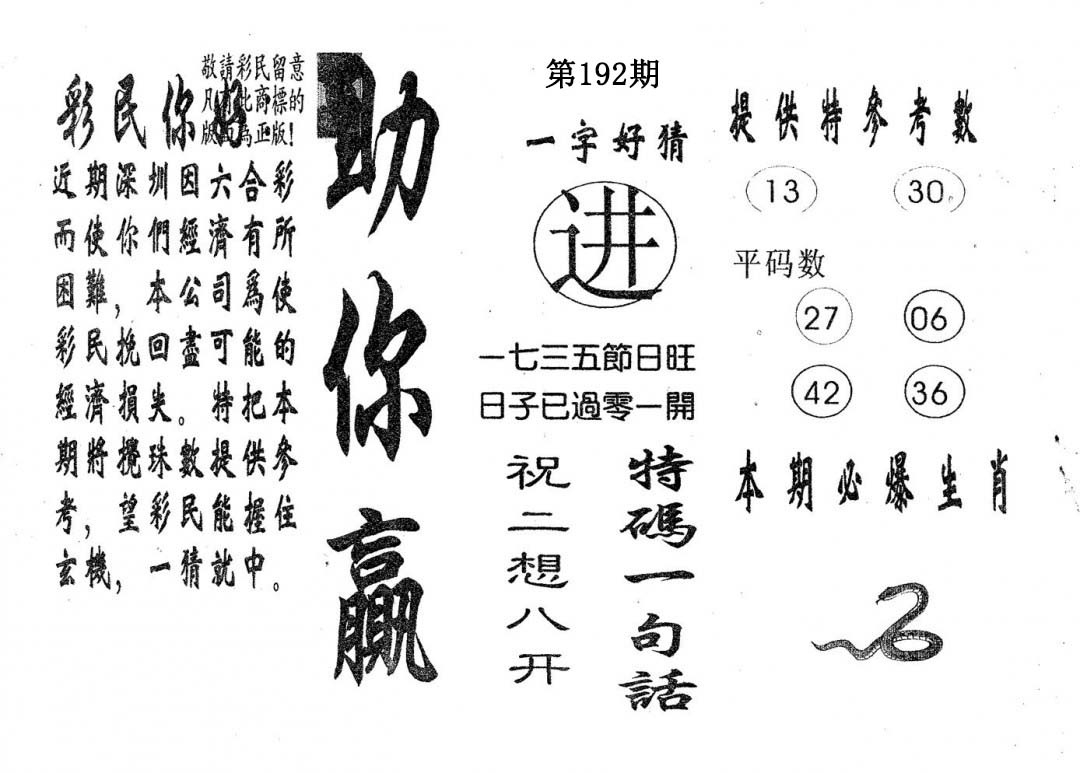 敬請彩民留意
凡有此商標的
版面為正版!
彩民你好
近期深圳因六合彩
而使你們經濟有所
困難，本公司爲使
彩民挽回盡可能的
經濟損失。特把本
期將攪珠數提供參
考，望彩民能握住
玄機，一猜就中。
助你贏
第192期
一字好猜
进
一七三五節日旺
日子已過零一開
祝二想八开
特碼一句話
提供特參考數
13 30
平码数
27 06
42 36
本期必爆生肖